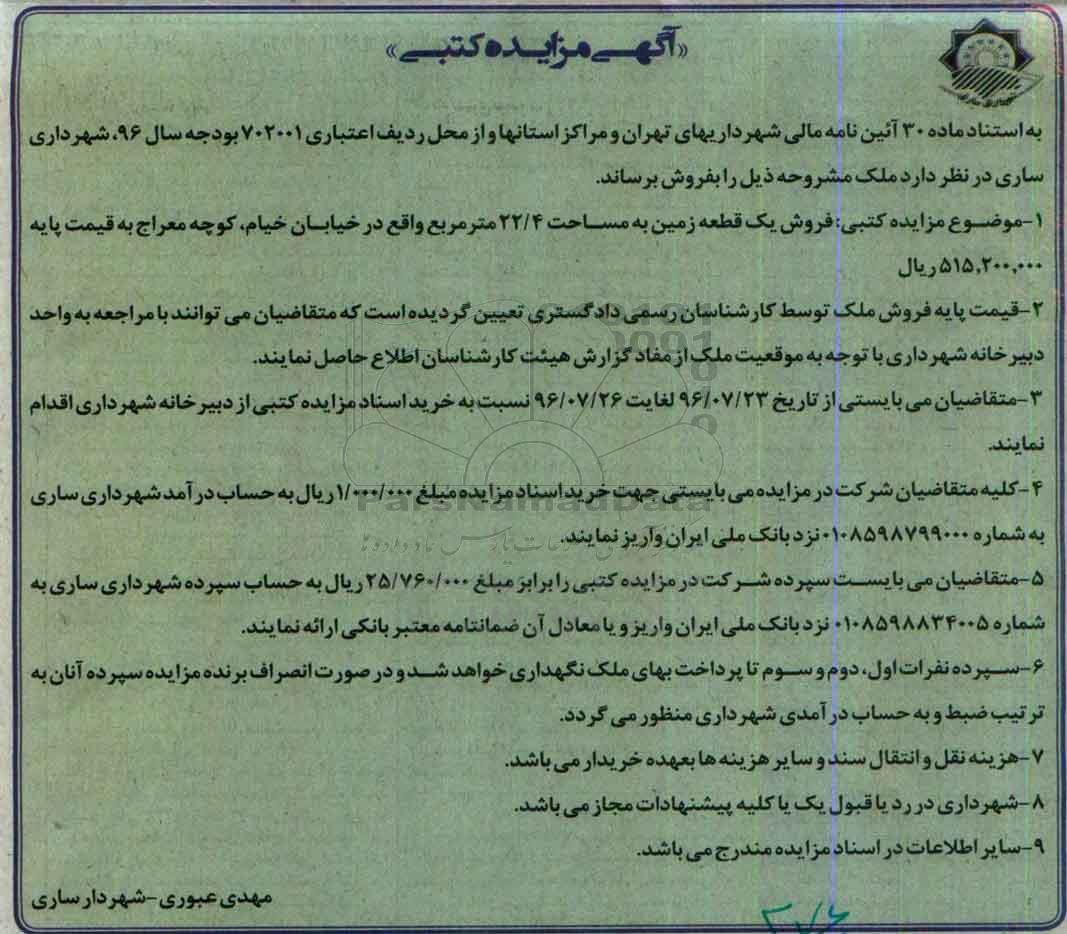 «آگهی مزایده کتبی»
شهرداری ساری
به استناد ماده ۳۰ آئین نامه مالی شهرداریهای تهران و مراکز استانها و از محل ردیف اعتباری ۷۰۲۰۰۱ بودجه سال ۹۶، شهرداری
ساری در نظر دارد ملک مشروحه ذیل را بفروش برساند.
۱-موضوع مزایده کتبی: فروش یک قطعه زمین به مساحت ۲۲/۴ مترمربع واقع در خیابان خیام، کوچه معراج به قیمت پایه
۵۱۵,۲۰۰,۰۰۰ ریال
۲-قیمت پایه فروش ملک توسط کارشناسان رسمی دادگستری تعیین گردیده است که متقاضیان می توانند با مراجعه به واحد
دبیرخانه شهرداری با توجه به موقعیت ملک از مفاد گزارش هیئت کارشناسان اطلاع حاصل نمایند.
۳-متقاضیان می بایستی از تاریخ ۹۶/۰۷/۲۳ لغایت ۹۶/۰۷/۲۶ نسبت به خرید اسناد مزایده کتبی از دبیرخانه شهرداری اقدام
نمایند.
۴-کلیه متقاضیان شرکت در مزایده می بایستی جهت خرید اسناد مزایده مبلغ ۱/۰۰۰/۰۰۰ ریال به حساب درآمد شهرداری ساری
ParsNamadData
به شماره ۰۱۰۸۵۹۸۷۹۹۰۰۰ نزد بانک ملی ایران واریز نمایند.
۵-متقاضیان می بایست سپرده شرکت در مزایده کتبی را برابر مبلغ ۲۵/۷۶۰/۰۰۰ ریال به حساب سپرده شهرداری ساری به
شماره ۰۱۰۸۵۹۸۸۳۴۰۰۵ نزد بانک ملی ایران واریز و یا معادل آن ضمانتامه معتبر بانکی ارائه نمایند.
۶-سپرده نفرات اول، دوم و سوم تا پرداخت بهای ملک نگهداری خواهد شد و در صورت انصراف برنده مزایده سپرده آنان به
ترتیب ضبط و به حساب درآمدی شهرداری منظور می گردد.
۷-هزینه نقل و انتقال سند و سایر هزینه ها بعهده خریدار می باشد.
۸-شهرداری در رد یا قبول یک یا کلیه پیشنهادات مجاز می باشد.
۹-سایر اطلاعات در اسناد مزایده مندرج می باشد.
مهدی عبوری-شهردار ساری